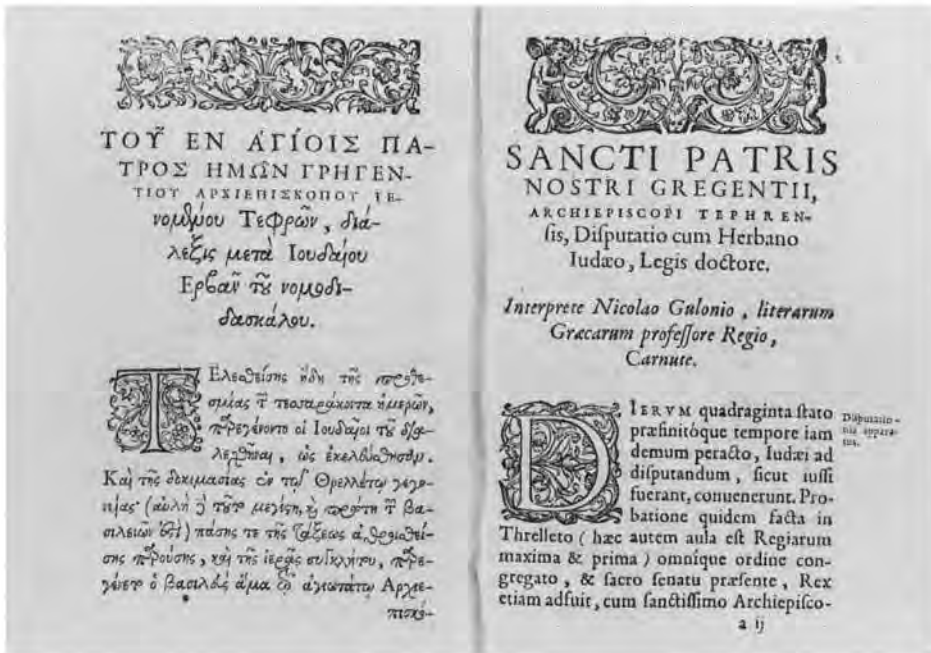 ΤΟΥ͂ ΕΝ ΑΓΙΌΙΣ ΠΑ-
ΤΡΟΣ ΗΜΩ͂Ν ΓΡΗΓΕΝ-
ΤΙΟΥ ΑΡΧΙΕΠΙΣΚΟΠΟΥ ΓΕ-
νομένου Τεφρῶν, διά-
λεξις μετὰ Ιουδαίου
Ερβὰν τοῦ νομοδι-
δασκάλου.
ΤΕλεσθείσης ἤδη τῆς προθε-
σμίας τῶν τεσσαράκοντα ἡμερῶν,
παρεγένοντο οἱ Ιουδαῖοι τοῦ δια-
λεχθῆναι, ὡς ἐκελεύσθησαν.
Καὶ τῆς δοκιμασίας ἐν τῷ Θρελλέτῳ γεγο-
νυίας (αὐλὴ δὲ τοῦτο μεγίστη καὶ πρώτη τῶν βα-
σιλειῶν ἐστὶ) πάσης τε τῆς τάξεως ἀθροισθεί-
σης παρούσης, καὶ τῆς ἱερᾶς συγκλήτου, παρε-
γένετο ὁ βασιλεὺς ἅμα τῷ ἁγιωτάτῳ Αρχιε-
πισκό-
SANCTI PATRIS
NOSTRI GREGENTII,
ARCHIEPISCOPI TEPHREN-
sis, Disputatio cum Herbano
Iudæo, Legis doctore.
Interprete Nicolao Gulonio, literarum
Græcarum professore Regio,
Carnute.
DIERVM quadraginta stato
præfinitóque tempore iam
demum peracto, Iudæi ad
disputandum, sicut iussi
fuerant, conuenerunt. Pro-
batione quidem facta in
Threlleto (hæc autem aula est Regiarum
maxima & prima) omnique ordine con-
gregato, & sacro senatu præsente, Rex
etiam adfuit, cum sanctissimo Archiepisco-
a ij
Disputatio-
nis appara-
tus.